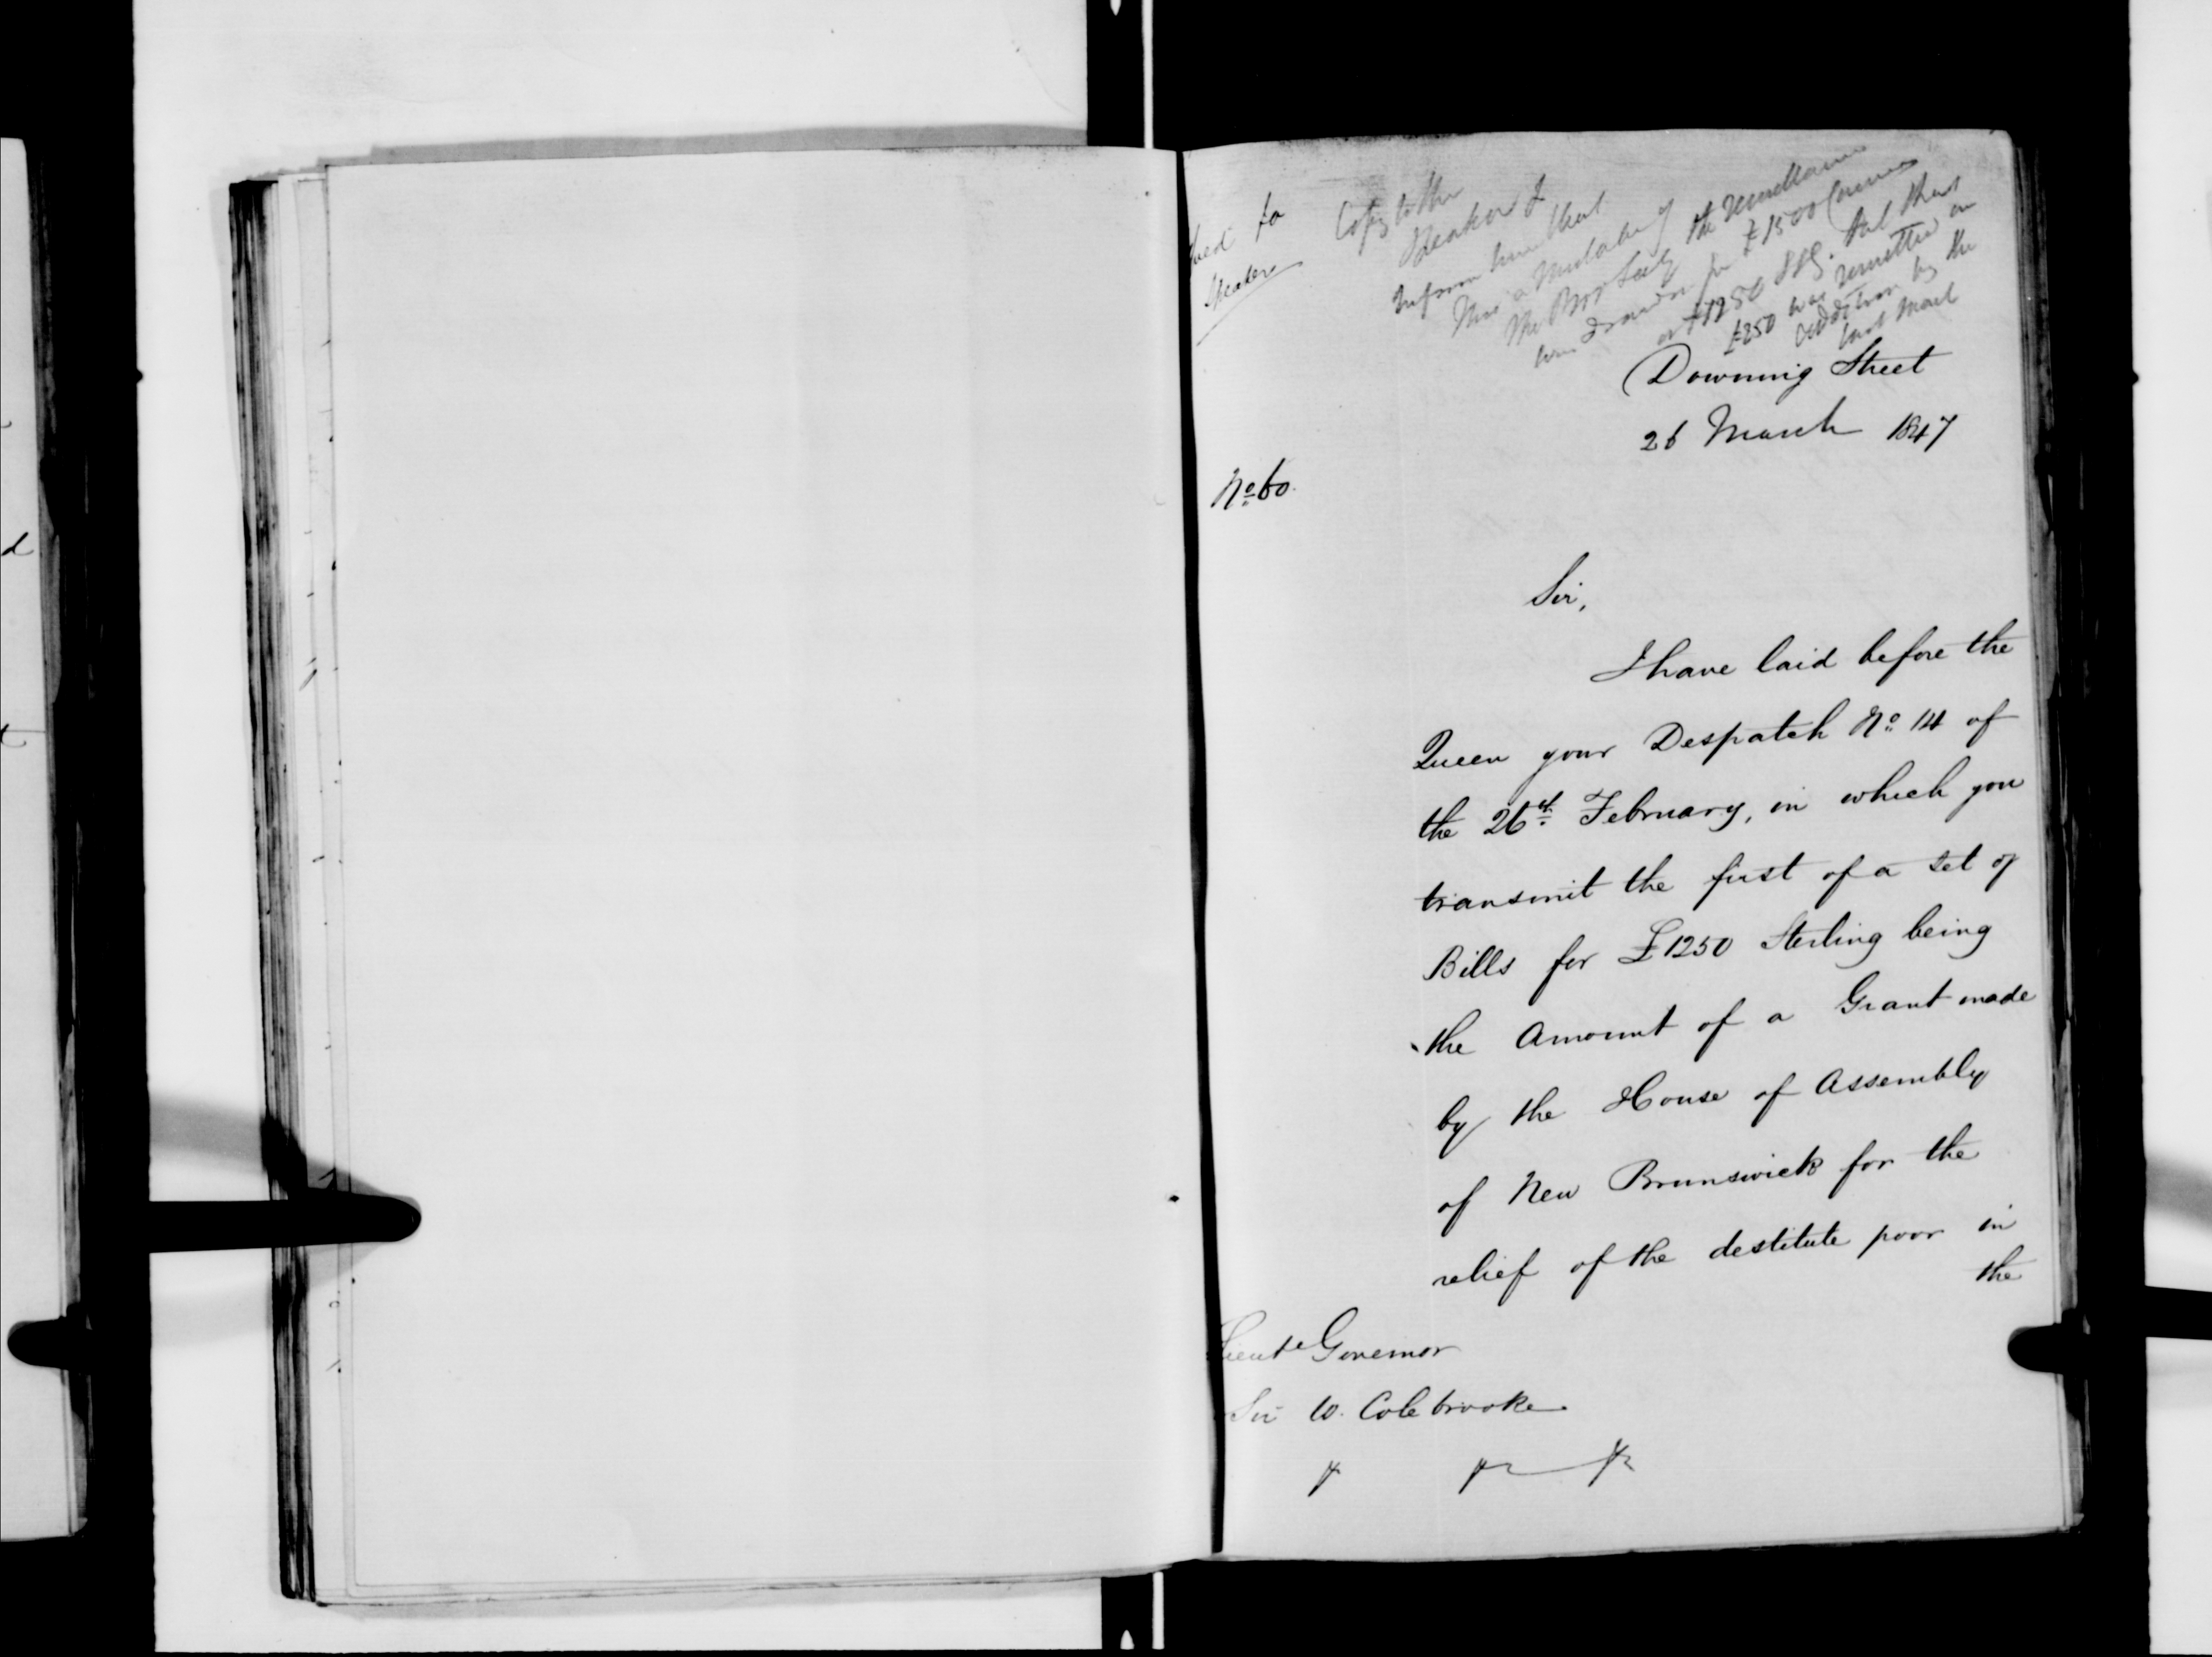 to
Speaker
Copy to the
Speaker &
Inform him that
the
drawn for £1500
£1250 Stg. that
£250 was remitted in
addition by the
last Mail
Downing Street
26 March 1847
No. 60.
Sir,
I have laid before the
Queen your Despatch No. 14 of
the 26th February, in which you
transmit the first of a set of
Bills for £1250 Sterling being
the Amount of a Grant made
by the House of Assembly
of New Brunswick for the
relief of the destitute poor in
the
Lieut Governor
Sir W. Colebrooke